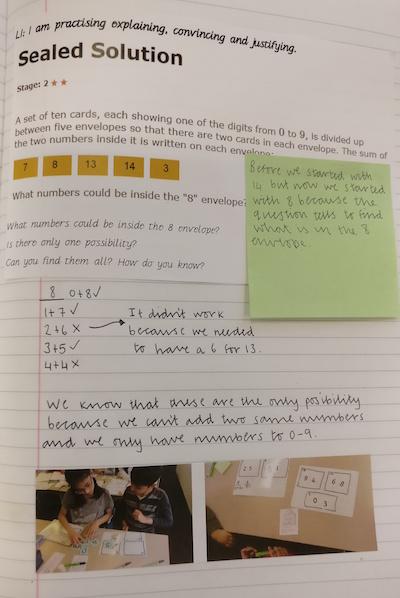 LI: I am practising explaining, convincing and justifying.
Sealed Solution
Stage: 2 ★★
A set of ten cards, each showing one of the digits from 0 to 9, is divided up
between five envelopes so that there are two cards in each envelope. The sum of
the two numbers inside it is written on each envelope:
7 8 13 14 3
What numbers could be inside the "8" envelope?
What numbers could be inside the 8 envelope?
Is there only one possibility?
Can you find them all? How do you know?
Before we started with
14 but now we started
with 8 because the
question tells to find
what is in the 8
envelope.
8 0+8✓
1+7 ✓
2+6 ✗
3+5 ✓
4+4 ✗
It didn't work
because we needed
to have a 6 for 13.
We know that these are the only posibility
because we can't add two same numbers
and we only have numbers to 0-9.